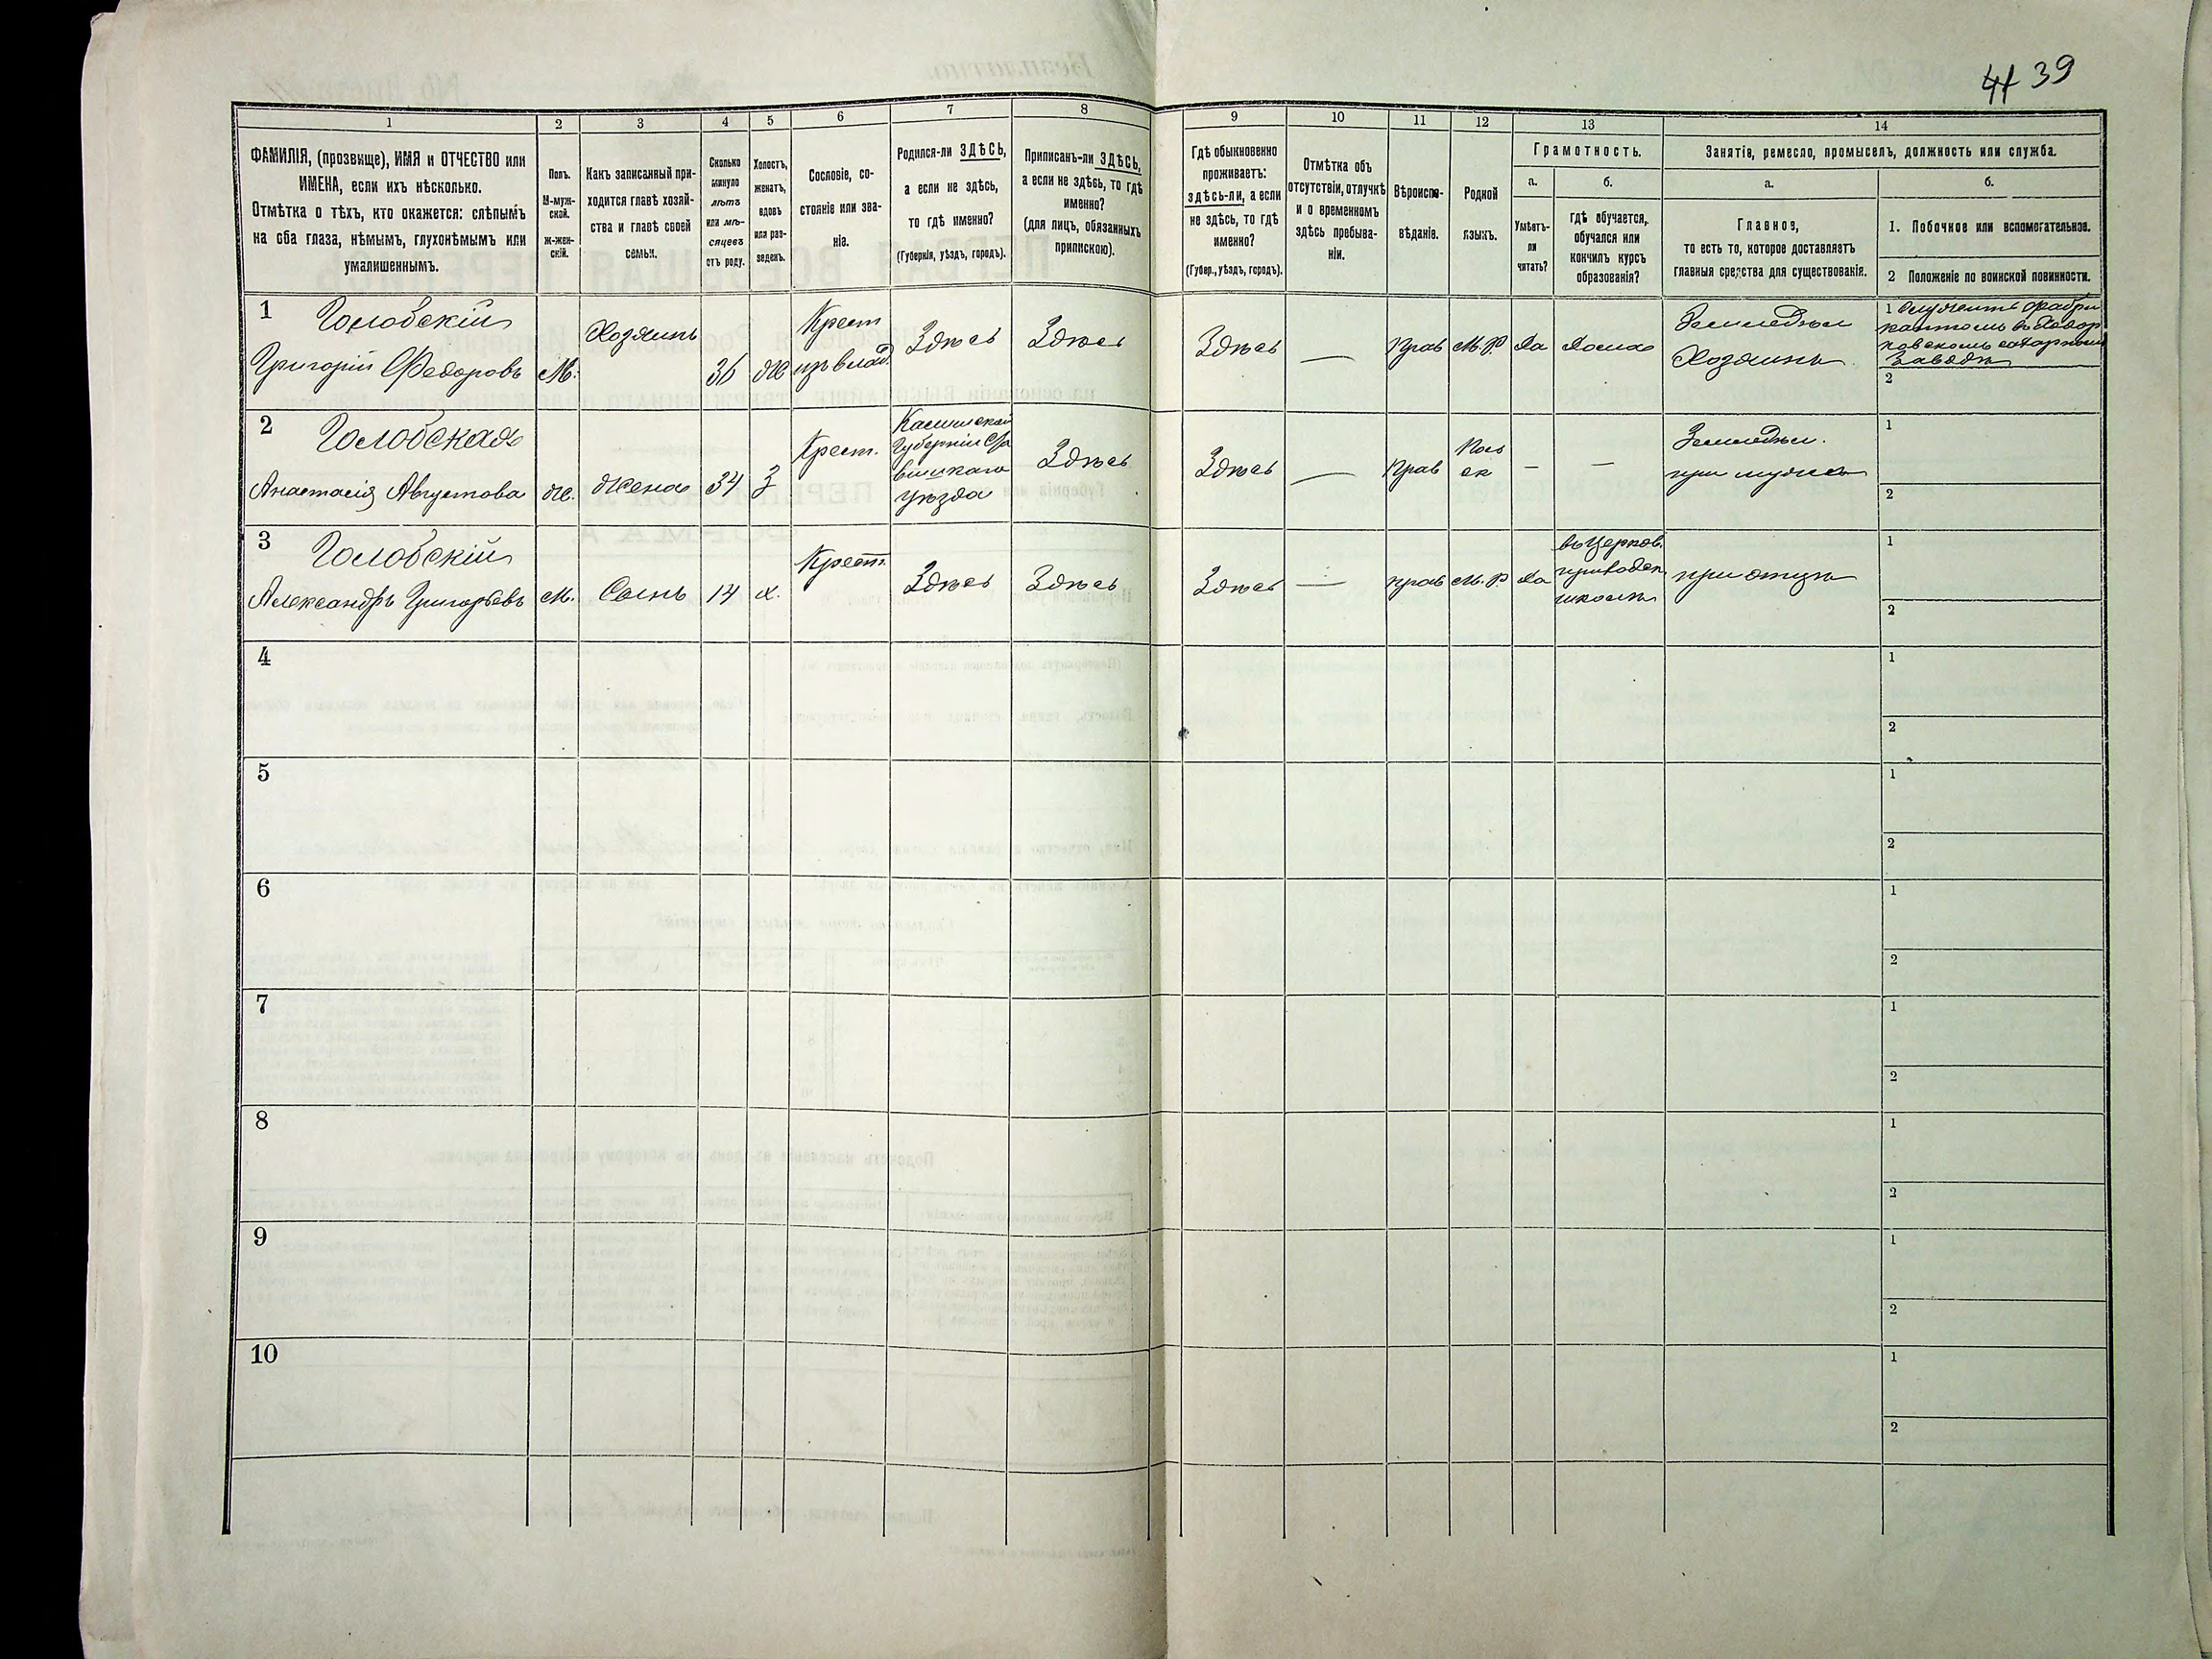 41 39
1 2 3 4 5 6 7 8 9 10 11 12 13 14
ФАМИЛІЯ, (прозвище), ИМЯ и ОТЧЕСТВО или
ИМЕНА, если ихъ нѣсколько.
Отмѣтка о тѣхъ, кто окажется: слѣпымъ
на оба глаза, нѣмымъ, глухонѣмымъ или
умалишеннымъ.
Полъ.
М-муж-
ской.
Ж-жен-
скій.
Какъ записанный при-
ходится главѣ хозяй-
ства и главѣ своей
семьи.
Сколько
минуло
лѣтъ
или мѣ-
сяцевъ
отъ роду.
Холостъ,
женатъ,
вдовъ
или раз-
веденъ.
Сословіе, со-
стояніе или зва-
ніе.
Родился-ли ЗДѢСЬ,
а если не здѣсь,
то гдѣ именно?
(Губернія, уѣздъ, городъ).
Приписанъ-ли ЗДѢСЬ,
а если не здѣсь, то гдѣ
именно?
(для лицъ, обязанныхъ
припискою).
Гдѣ обыкновенно
проживаетъ:
здѣсь-ли, а если
не здѣсь, то гдѣ
именно?
(Губер., уѣздъ, городъ).
Отмѣтка объ
отсутствіи, отлучкѣ
и о временномъ
здѣсь пребыва-
ніи.
Вѣроиспо-
вѣданіе.
Родной
языкъ.
Грамотность.
а.
Умѣетъ-
ли
читать?
б.
гдѣ обучается,
обучался или
кончилъ курсъ
образованія?
Занятіе, ремесло, промыселъ, должность или служба.
а.
Главное,
то есть то, которое доставляетъ
главныя средства для существованія.
б.
1. Побочное или вспомогательное.
2 Положеніе по воинской повинности.
1 Головскій
Григорій Федоровъ
М.
Хозяинъ
36
Ж
Крест
изъ влад.
Здѣсь
Здѣсь
Здѣсь
—
Прав
М.Р.
Да
Дома
Земледѣл
Хозяинъ
1 Служитъ фабри
кантомъ въ Ходор
ковскомъ сахарномъ
Заводѣ
2
2 Головская
Анастасія Августова
Ж.
Жена
34
З
Крест.
Губерніи
уѣзда
Здѣсь
Здѣсь
—
Прав
— —
Земледѣл.
при мужѣ
1
2
3 Головскій
Александръ Григорьевъ
М.
Сынъ
14
Х.
Крест.
Здѣсь
Здѣсь
Здѣсь
—
прав
М.Р
Да
въ Церков.
приходск
школѣ
при отцѣ
1
2
4
1
2
5
1
2
6
1
2
7
1
2
8
1
2
9
1
2
10
1
2